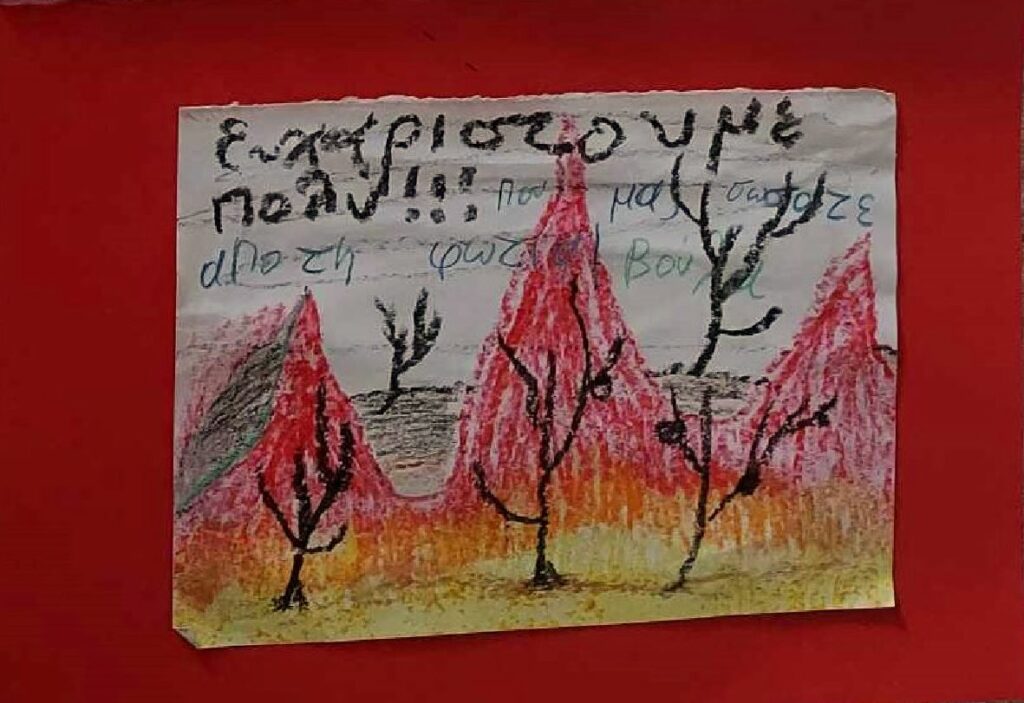 ευχαριστουμε
πολυ!!! που μας σωσατε
απο τη φωτια! Βούλα